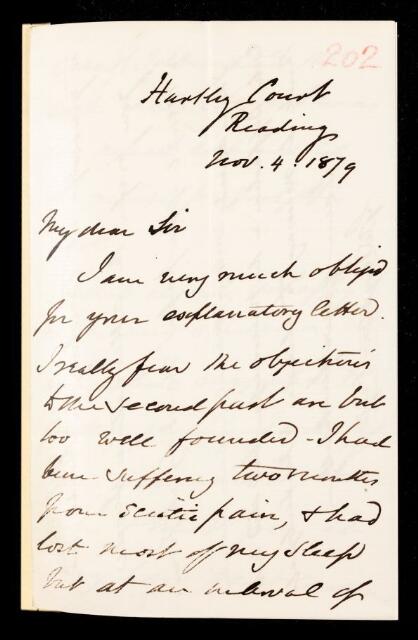 202
Hartley Court
Reading
Nov. 4. 1879
My dear Sir
I am very much obliged
for your explanatory letter.
I really fear the objections
to the second part are but
too well founded - I had
been suffering two months
from sciatic pain, & had
lost most of my sleep
but at an interval of